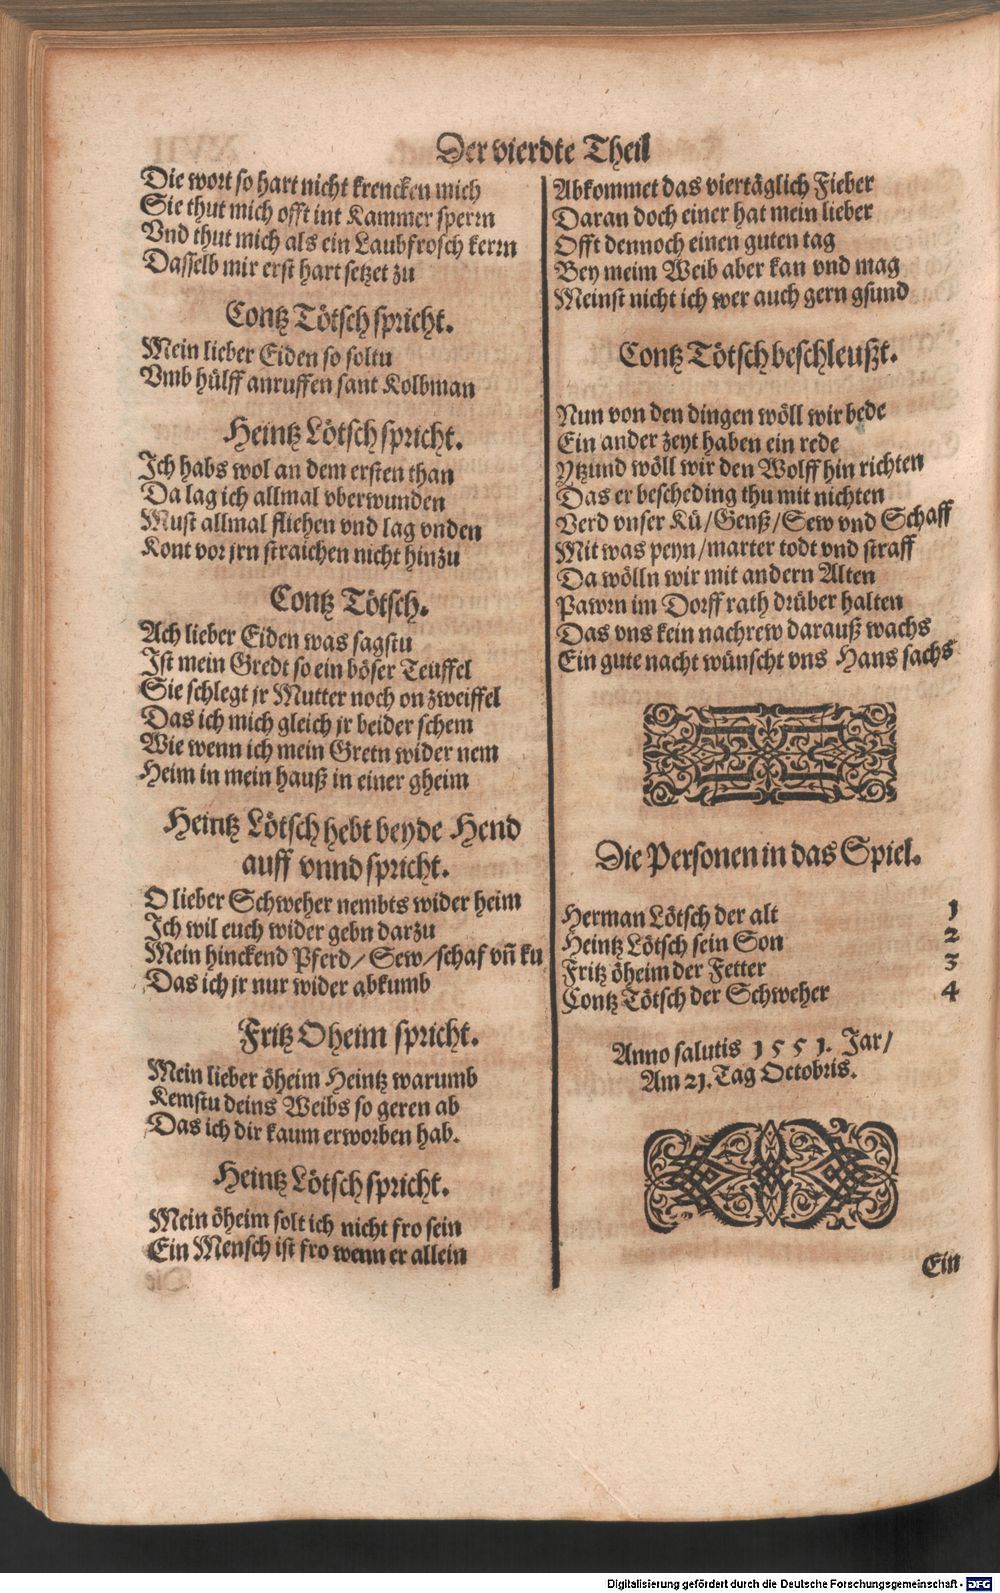 Der vierdte Theil
Die wort so hart nicht krencken mich
Sie thut mich offt int Kammer sperrn
Vnd thut mich als ein Laubfrosch kerrn
Dasselb mir erst hart setzet zu
Contz Tötsch spricht.
Mein lieber Eiden so soltu
Vmb hülff anruffen sant Kolbman
Heintz Lötsch spricht.
Ich habs wol an dem ersten than
Da lag ich allmal vberwunden
Must allmal fliehen vnd lag vnden
Kont vor jrn straichen nicht hinzu
Contz Tötsch.
Ach lieber Eiden was sagstu
Ist mein Gredt so ein böser Teuffel
Sie schlegt jr Mutter noch on zweiffel
Das ich mich gleich jr beider schem
Wie wenn ich mein Gretn wider nem
Heim in mein hauß in einer gheim
Heintz Lötsch hebt beyde Hend
auff vnnd spricht.
O lieber Schweher nembts wider heim
Ich wil euch wider gebn darzu
Mein hinckend Pferd/ Sew/schaf vñ ku
Das ich jr nur wider abkumb
Fritz Oheim spricht.
Mein lieber öheim Heintz warumb
Kemstu deins Weibs so geren ab
Das ich dir kaum erworben hab.
Heintz Lötsch spricht.
Mein öheim solt ich nicht fro sein
Ein Mensch ist fro wenn er allein
Abkommet das viertäglich Fieber
Daran doch einer hat mein lieber
Offt dennoch einen guten tag
Bey meim Weib aber kan vnd mag
Meinst nicht ich wer auch gern gsund
Contz Tötsch beschleußt.
Nun von den dingen wöll wir bede
Ein ander zeyt haben ein rede
Ytzund wöll wir den Wolff hin richten
Das er bescheding thu mit nichten
Verd vnser Kü/Genß/Sew vnd Schaff
Mit was peyn/marter todt vnd straff
Da wölln wir mit andern Alten
Pawrn im Dorff rath drüber halten
Das vns kein nachrew darauß wachs
Ein gute nacht wünscht vns Hans sachs
Die Personen in das Spiel.
Herman Lötsch der alt 1
Heintz Lötsch sein Son 2
Fritz öheim der Fetter 3
Contz Tötsch der Schweher 4
Anno salutis 1551. Jar/
Am 21. Tag Octobris.
Ein
Digitalisierung gefördert durch die Deutsche Forschungsgemeinschaft - DFG